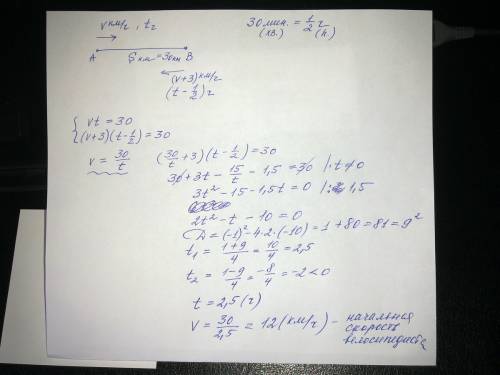 v км/г, t г
30 мин. = 1/2 г
(хв.) (h.)
A S км = 30 км B
(v+3) км/г
(t - 1/2) г
{ vt = 30
(v+3)(t - 1/2) = 30
v = 30/t (30/t + 3)(t - 1/2) = 30
30 + 3t - 15/t - 1,5 = 30 | · t ≠ 0
3t² - 15 - 1,5t = 0 | : 1,5
2t² - t - 10 = 0
D = (-1)² - 4·2·(-10) = 1 + 80 = 81 = 9²
t₁ = (1+9)/4 = 10/4 = 2,5
t₂ = (1-9)/4 = -8/4 = -2 < 0
t = 2,5 (г)
v = 30/2,5 = 12 (км/г) - начальная
скорость
велосипедиста